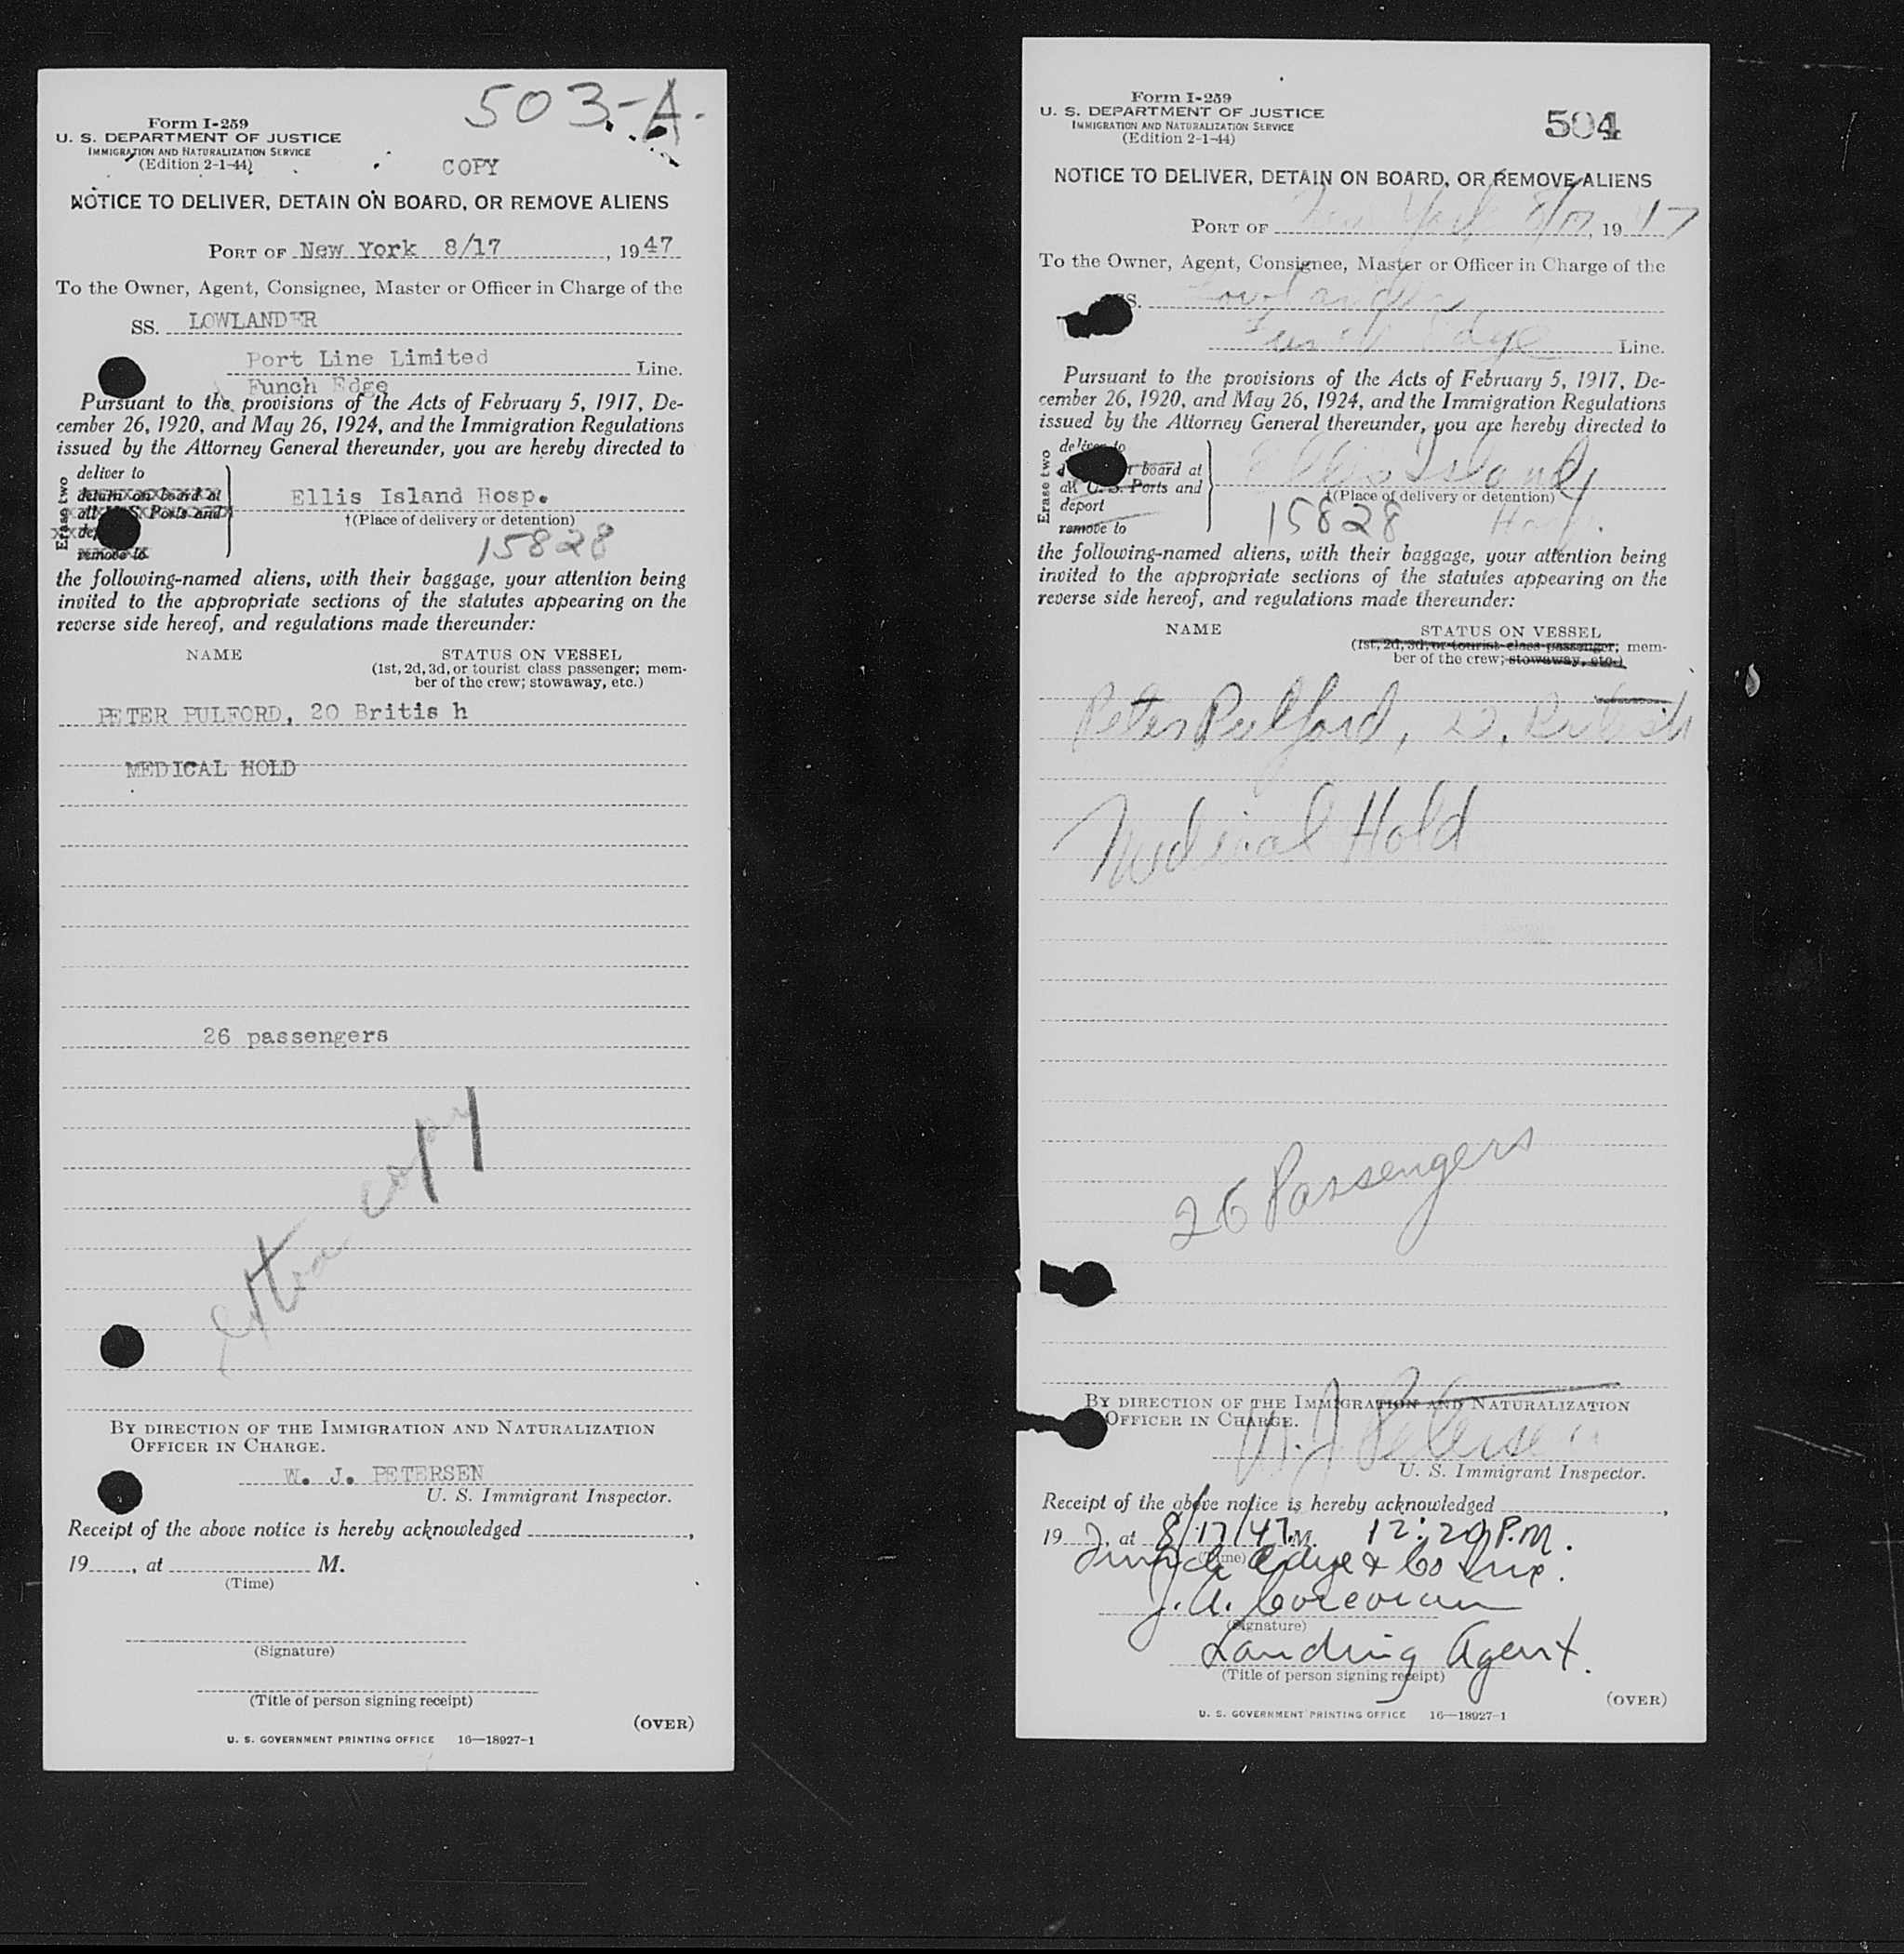 503-A.
Form I-259
U. S. DEPARTMENT OF JUSTICE
IMMIGRATION AND NATURALIZATION SERVICE
(Edition 2-1-44)
COPY
NOTICE TO DELIVER, DETAIN ON BOARD, OR REMOVE ALIENS
PORT OF New York 8/17, 1947
To the Owner, Agent, Consignee, Master or Officer in Charge of the
SS. LOWLANDER
Port Line Limited Line.
Funch Edge
Pursuant to the provisions of the Acts of February 5, 1917, De-
cember 26, 1920, and May 26, 1924, and the Immigration Regulations
issued by the Attorney General thereunder, you are hereby directed to
Erase two
deliver to
detain on board at
all U. S. Ports and
remove to
Ellis Island Hosp.
†(Place of delivery or detention)
15828
the following-named aliens, with their baggage, your attention being
invited to the appropriate sections of the statutes appearing on the
reverse side hereof, and regulations made thereunder:
NAME STATUS ON VESSEL
(1st, 2d, 3d, or tourist class passenger; mem-
ber of the crew; stowaway, etc.)
PETER PULFORD, 20 Britis h
MEDICAL HOLD
26 passengers
extra copy
BY DIRECTION OF THE IMMIGRATION AND NATURALIZATION
OFFICER IN CHARGE.
W. J. PETERSEN
U. S. Immigrant Inspector.
Receipt of the above notice is hereby acknowledged ,
19 , at M.
(Time)
(Signature)
(Title of person signing receipt)
(OVER)
U. S. GOVERNMENT PRINTING OFFICE 16—18927-1
Form I-259
U. S. DEPARTMENT OF JUSTICE
IMMIGRATION AND NATURALIZATION SERVICE
(Edition 2-1-44)
504
NOTICE TO DELIVER, DETAIN ON BOARD, OR REMOVE ALIENS
PORT OF New York 8/17, 1947
To the Owner, Agent, Consignee, Master or Officer in Charge of the
SS. Lowlander
Funch Edge Line.
Pursuant to the provisions of the Acts of February 5, 1917, De-
cember 26, 1920, and May 26, 1924, and the Immigration Regulations
issued by the Attorney General thereunder, you are hereby directed to
Erase two
deliver to
board at
all U. S. Ports and
deport
remove to
Ellis Island
†(Place of delivery or detention)
15828 Hosp.
the following-named aliens, with their baggage, your attention being
invited to the appropriate sections of the statutes appearing on the
reverse side hereof, and regulations made thereunder:
NAME STATUS ON VESSEL
(1st, 2d, 3d, or tourist class passenger; mem-
ber of the crew; stowaway, etc.)
Peter Pulford, 20, British
Medical Hold
26 Passengers
BY DIRECTION OF THE IMMIGRATION AND NATURALIZATION
OFFICER IN CHARGE.
W. J. Petersen
U. S. Immigrant Inspector.
Receipt of the above notice is hereby acknowledged ,
19 , at 8/17/47 M. 12:20 P.M.
(Time)
Funch Edye & Co Inc.
J. A. Corcoran
(Signature)
Landing Agent.
(Title of person signing receipt)
(OVER)
U. S. GOVERNMENT PRINTING OFFICE 16—18927-1